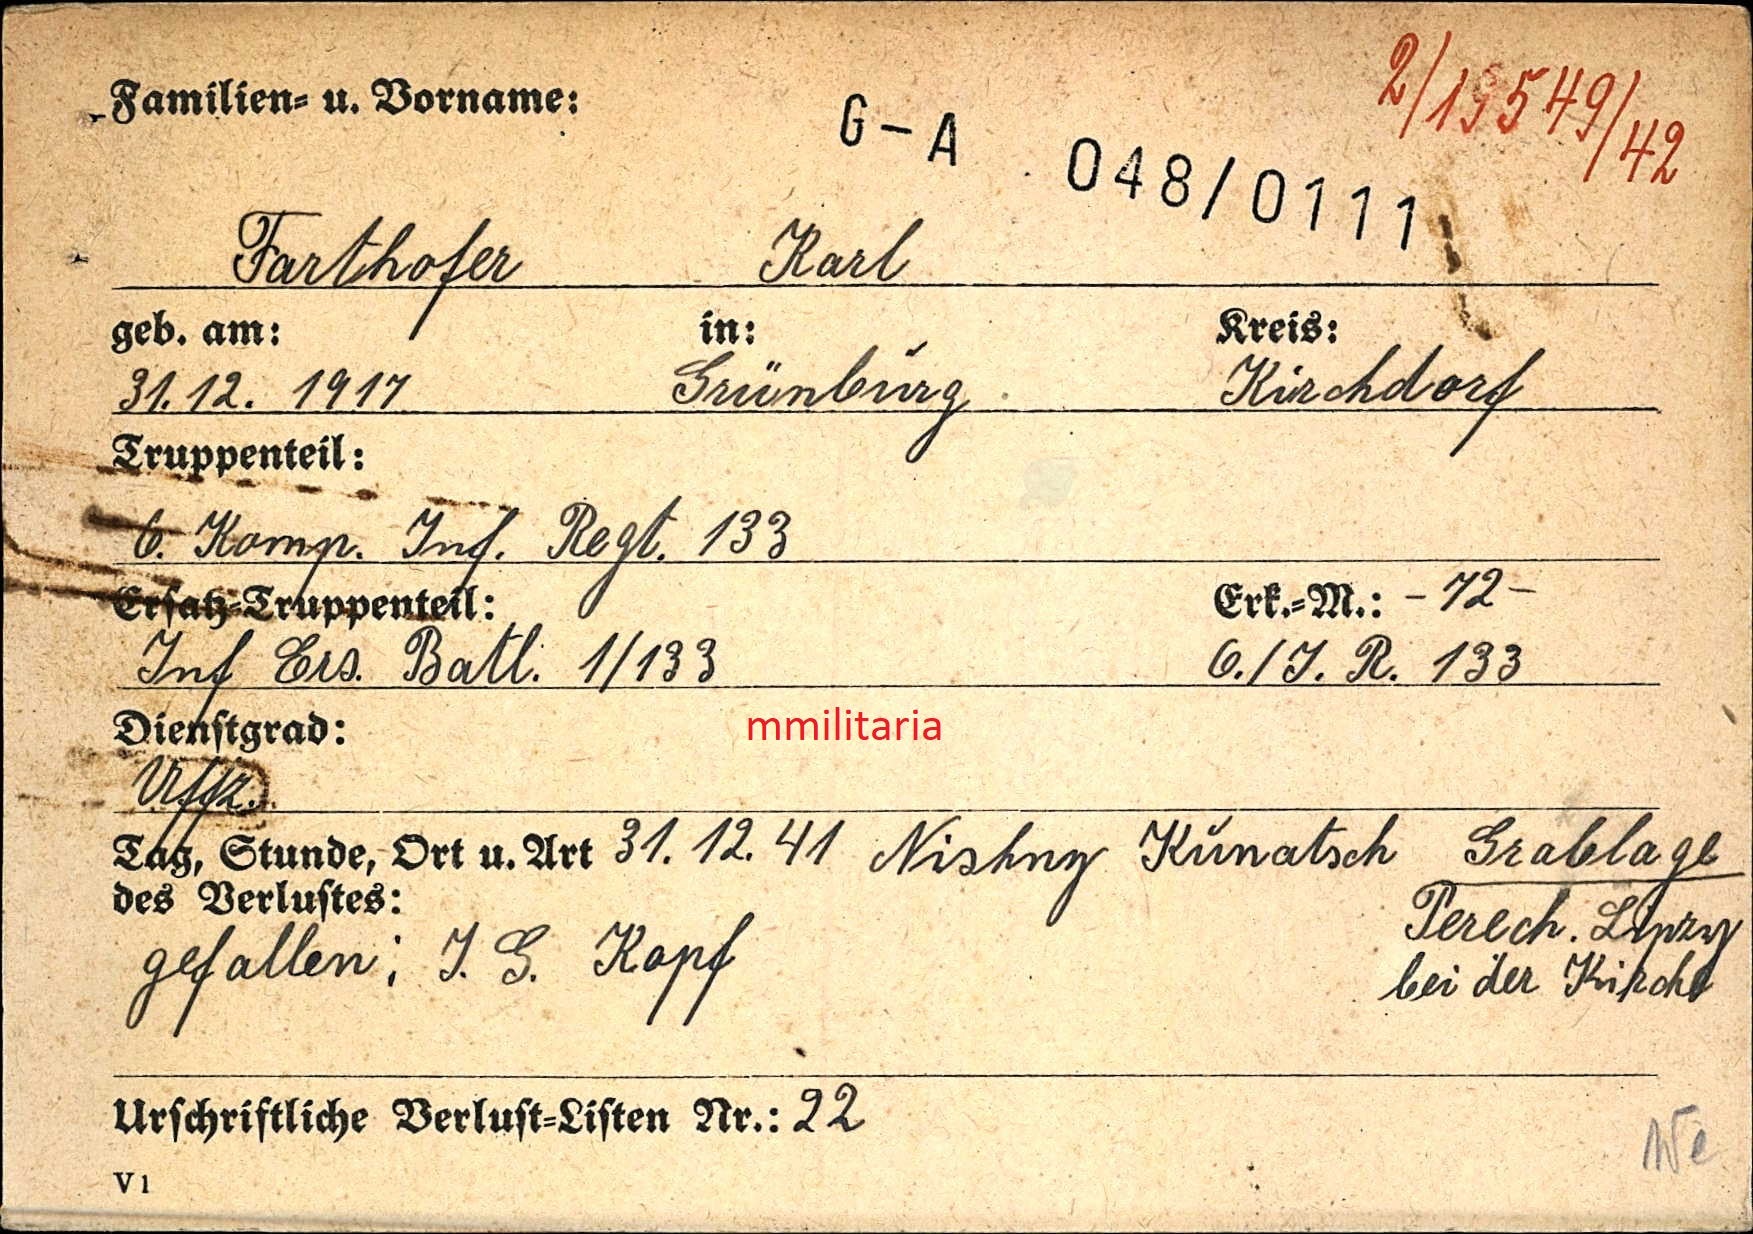 Familien- u. Vorname:
2/19549/42
G-A 048/0111
Farthofer Karl
geb. am: in: Kreis:
31.12. 1917 Grünburg Kirchdorf
Truppenteil:
6. Komp. Inf. Regt. 133
Ersatz-Truppenteil: Erk.-M.: -72-
Inf Ers. Batl. 1/133 6./I. R. 133
Dienstgrad:
mmilitaria
Uffz.
Tag, Stunde, Ort u. Art 31.12.41 Nishny Kunatsch Grablage
des Verlustes: Perech. Lipzy
gefallen; I. G. Kopf bei der Kirche
Urschriftliche Verlust-Listen Nr.: 22
V 1